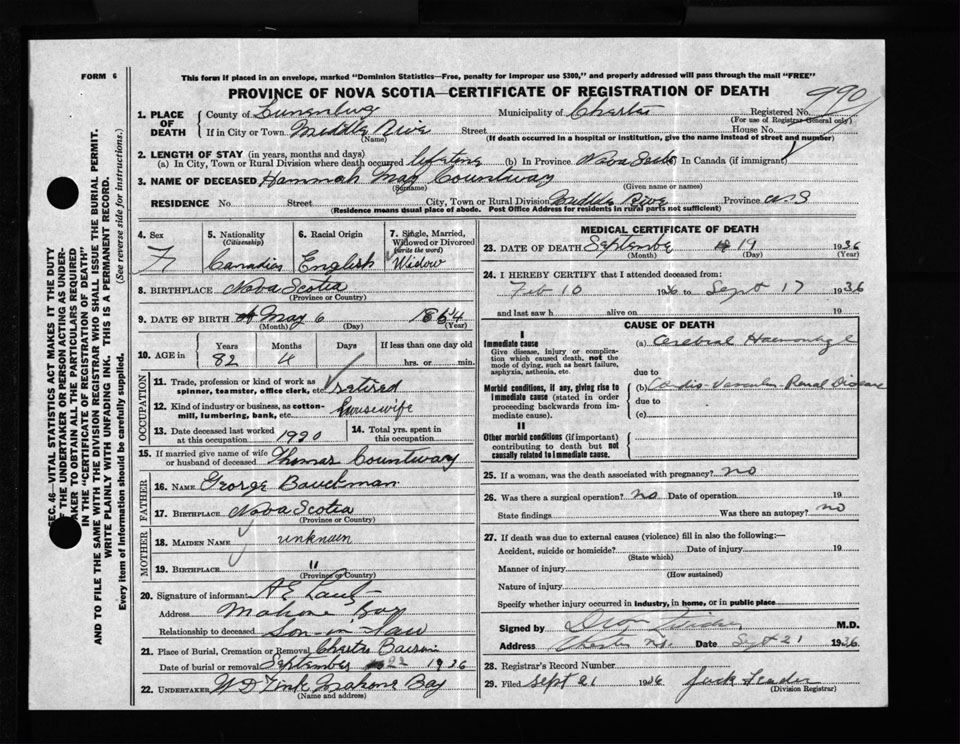 FORM 6
This form if placed in an envelope, marked "Dominion Statistics—Free, penalty for improper use $300," and properly addressed will pass through the mail "FREE"
PROVINCE OF NOVA SCOTIA—CERTIFICATE OF REGISTRATION OF DEATH
990
1. PLACE OF DEATH
County of Lunenburg Municipality of Chester Registered No.
(For use of Registrar General only)
If in City or Town Middle River Street House No.
(Name) (If death occurred in a hospital or institution, give the name instead of street and number)
2. LENGTH OF STAY (in years, months and days)
(a) In City, Town or Rural Division where death occurred lifetime (b) In Province Nova Scotia In Canada (if immigrant)
3. NAME OF DECEASED Hannah May Countway
(Surname) (Given name or names)
RESIDENCE No. Street City, Town or Rural Division Middle River Province N S
(Residence means usual place of abode. Post Office Address for residents in rural parts not sufficient)
4. Sex 5. Nationality (Citizenship) 6. Racial Origin 7. Single, Married, Widowed or Divorced (write the word)
F Canadian English Widow
8. BIRTHPLACE Nova Scotia
(Province or Country)
9. DATE OF BIRTH May 6 1854
(Month) (Day) (Year)
10. AGE in Years Months Days If less than one day old
82 4 hrs. or min.
OCCUPATION
11. Trade, profession or kind of work as spinner, teamster, office clerk, etc. retired
12. Kind of industry or business, as cotton-mill, lumbering, bank, etc. housewife
13. Date deceased last worked at this occupation 1920 14. Total yrs. spent in this occupation
15. If married give name of wife or husband of deceased Thomas Countway
FATHER
16. NAME George Bauckman
17. BIRTHPLACE Nova Scotia
(Province or Country)
MOTHER
18. MAIDEN NAME unknown
19. BIRTHPLACE "
(Province or Country)
20. Signature of informant A E
Address Mahone Bay
Relationship to deceased Son-in-law
21. Place of Burial, Cremation or Removal Chester Bassin
Date of burial or removal September 22 1936
22. UNDERTAKER W D Zink Mahone Bay
(Name and address)
MEDICAL CERTIFICATE OF DEATH
23. DATE OF DEATH September 19 1936
(Month) (Day) (Year)
24. I HEREBY CERTIFY that I attended deceased from:
Feb 10 1936 to Sept 17 1936
and last saw h alive on 19
CAUSE OF DEATH
I
Immediate cause
Give disease, injury or complication which caused death, not the mode of dying, such as heart failure, asphyxia, asthenia, etc.
(a) Cerebral Haemorrhage
due to
Morbid conditions, if any, giving rise to immediate cause (stated in order proceeding backwards from immediate cause).
(b) Cardio-Vascular-Renal Disease
due to
(c)
II
Other morbid conditions (if important) contributing to death but not causally related to immediate cause.
25. If a woman, was the death associated with pregnancy? no
26. Was there a surgical operation? no Date of operation 19
State findings Was there an autopsy? no
27. If death was due to external causes (violence) fill in also the following:—
Accident, suicide or homicide? Date of injury 19
(State which)
Manner of injury
(How sustained)
Nature of injury
Specify whether injury occurred in industry, in home, or in public place
Signed by M.D.
Address Chester N.S. Date Sept 21 1936
28. Registrar's Record Number
29. Filed Sept 21 1936
(Division Registrar)
SEC. 46—VITAL STATISTICS ACT MAKES IT THE DUTY
OF THE UNDERTAKER OR PERSON ACTING AS UNDER-
TAKER TO OBTAIN ALL THE PARTICULARS REQUIRED
IN THE "CERTIFICATE OF REGISTRATION OF DEATH"
AND TO FILE THE SAME WITH THE DIVISION REGISTRAR WHO SHALL ISSUE THE BURIAL PERMIT.
WRITE PLAINLY WITH UNFADING INK. THIS IS A PERMANENT RECORD.
Every item of information should be carefully supplied. (See reverse side for instructions.)